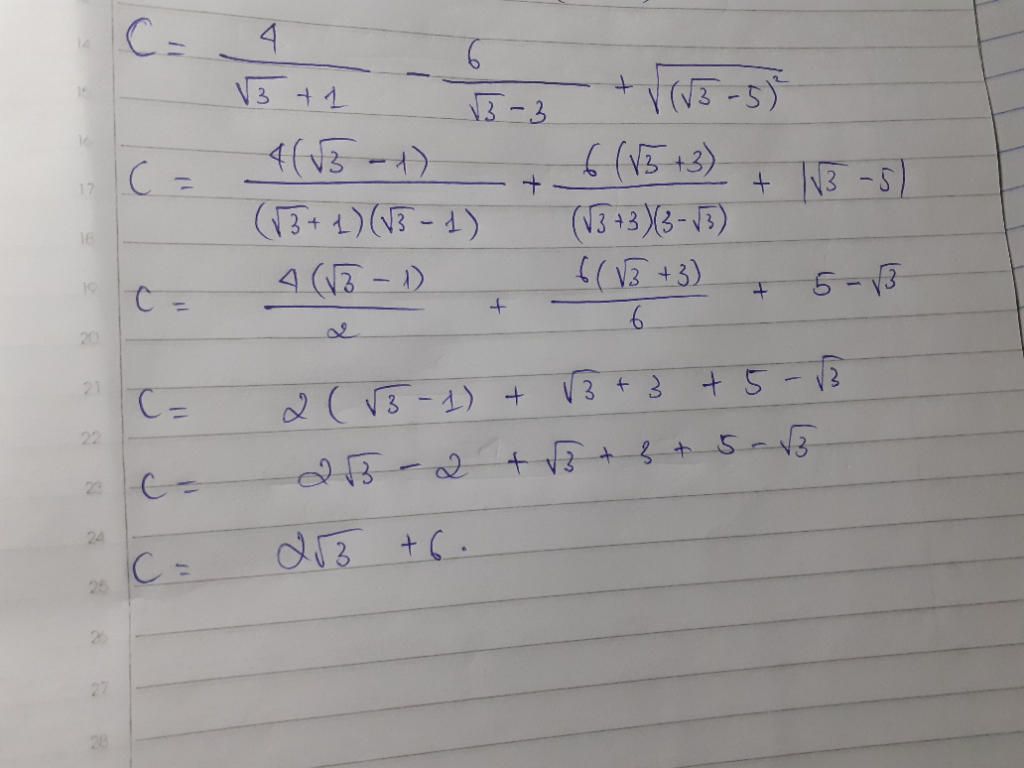 14
C = 4/(√3 + 1) - 6/(√3 - 3) + √((√3 - 5)²)
15
16
17 C = 4(√3 - 1)/((√3 + 1)(√3 - 1)) + 6(√3 + 3)/((√3 + 3)(3 - √3)) + |√3 - 5|
18
19 C = 4(√3 - 1)/2 + 6(√3 + 3)/6 + 5 - √3
20
21 C = 2(√3 - 1) + √3 + 3 + 5 - √3
22
23 C = 2√3 - 2 + √3 + 3 + 5 - √3
24
C = 2√3 + 6.
25
26
27
28